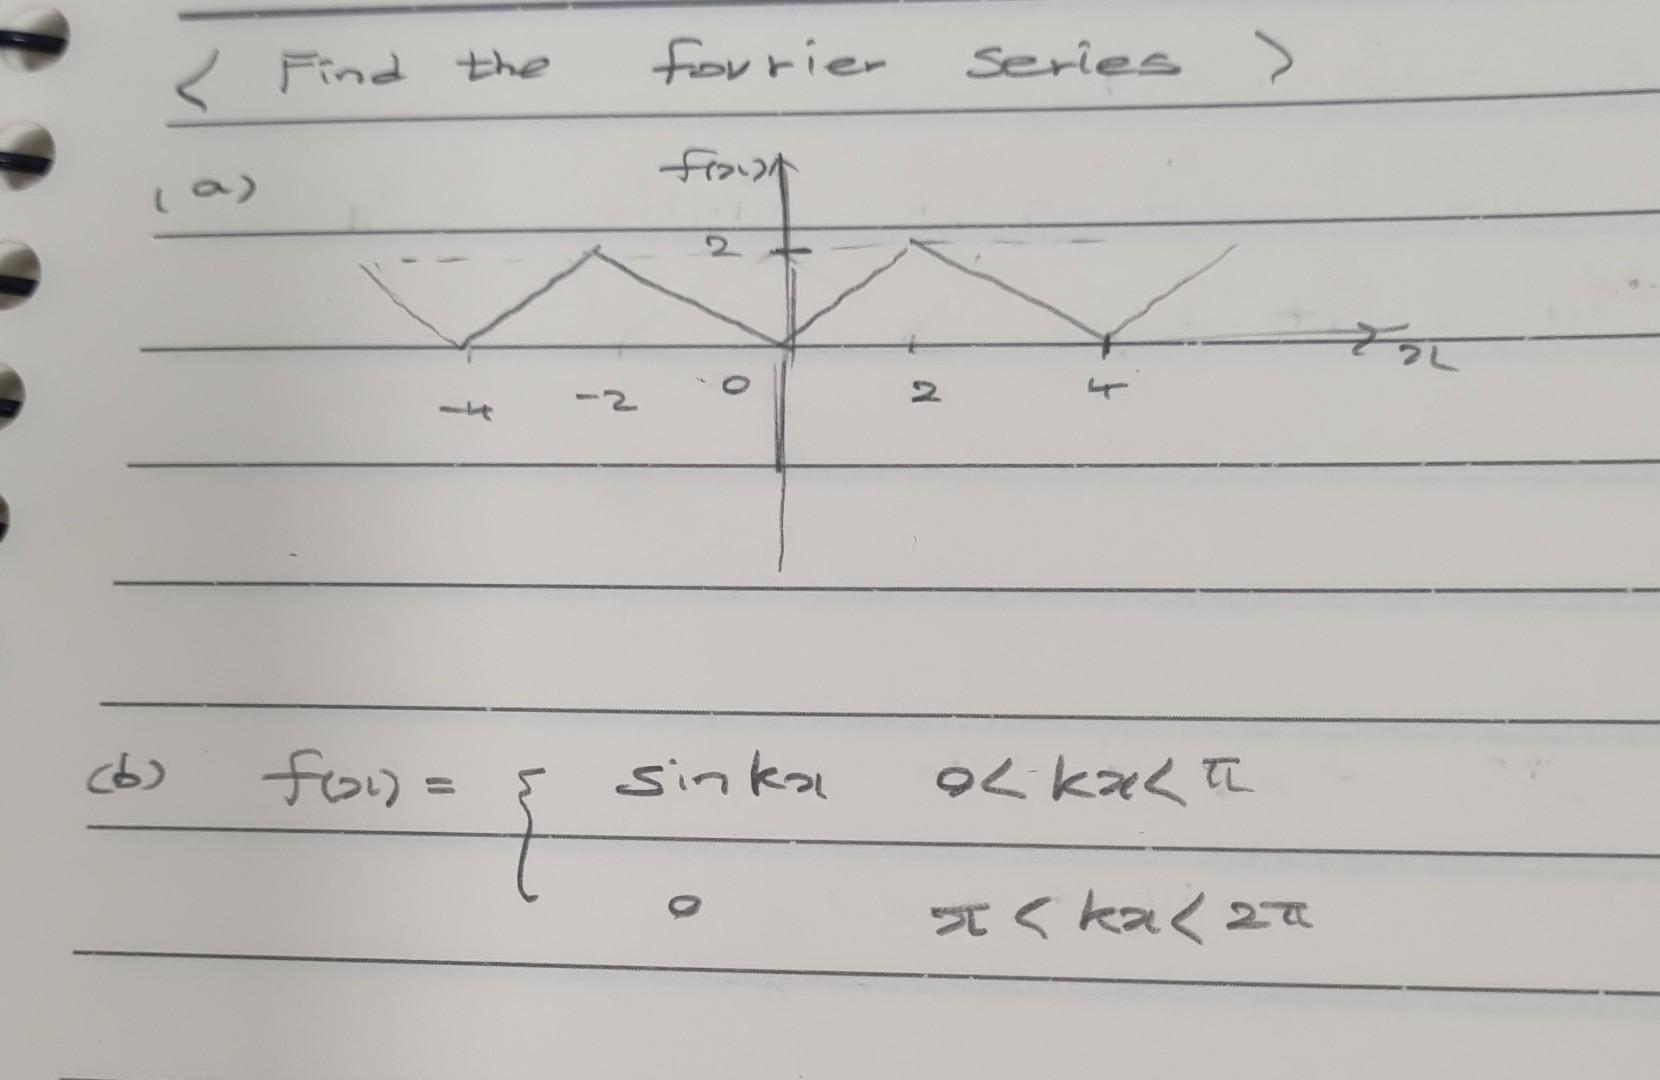 < Find the fourier series >
(a)
f(x)
2
-4 -2 0 2 4 x
(b) f(x) = { sinkx 0< kx< π
0 π < kx< 2π